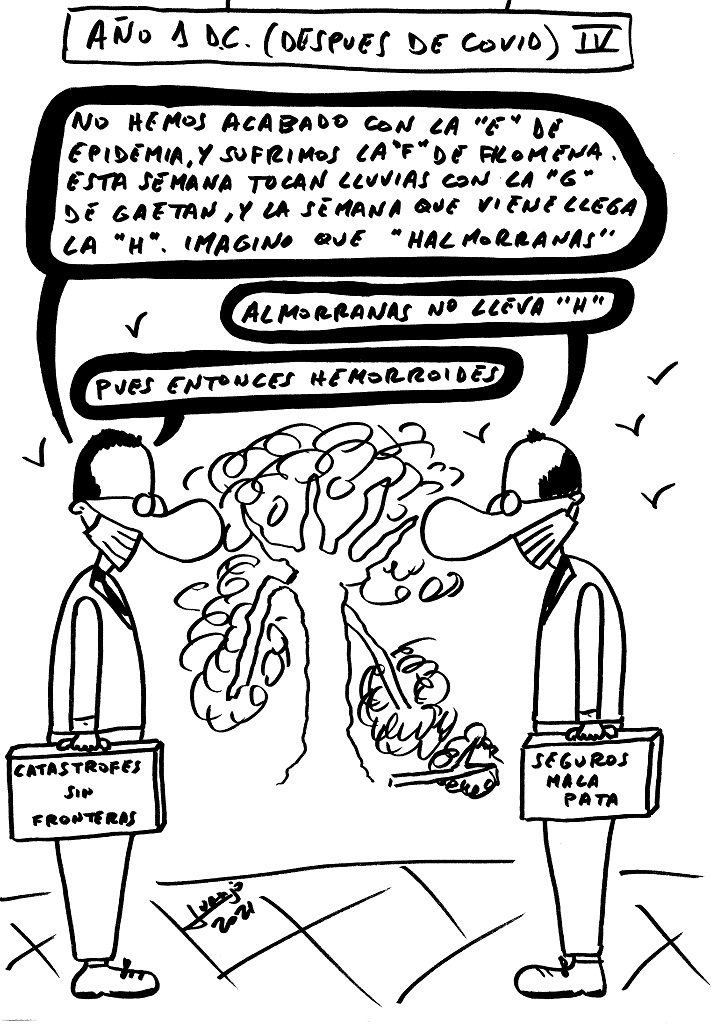 AÑO 1 D.C. (DESPUES DE COVID) IV
NO HEMOS ACABADO CON LA "E" DE
EPIDEMIA, Y SUFRIMOS LA "F" DE FILOMENA.
ESTA SEMANA TOCAN LLUVIAS CON LA "G"
DE GAETAN, Y LA SEMANA QUE VIENE LLEGA
LA "H". IMAGINO QUE "HALMORRANAS"
ALMORRANAS NO LLEVA "H"
PUES ENTONCES HEMORROIDES
CATASTROFES
SIN
FRONTERAS
SEGUROS
MALA
PATA
Juanjo
2021